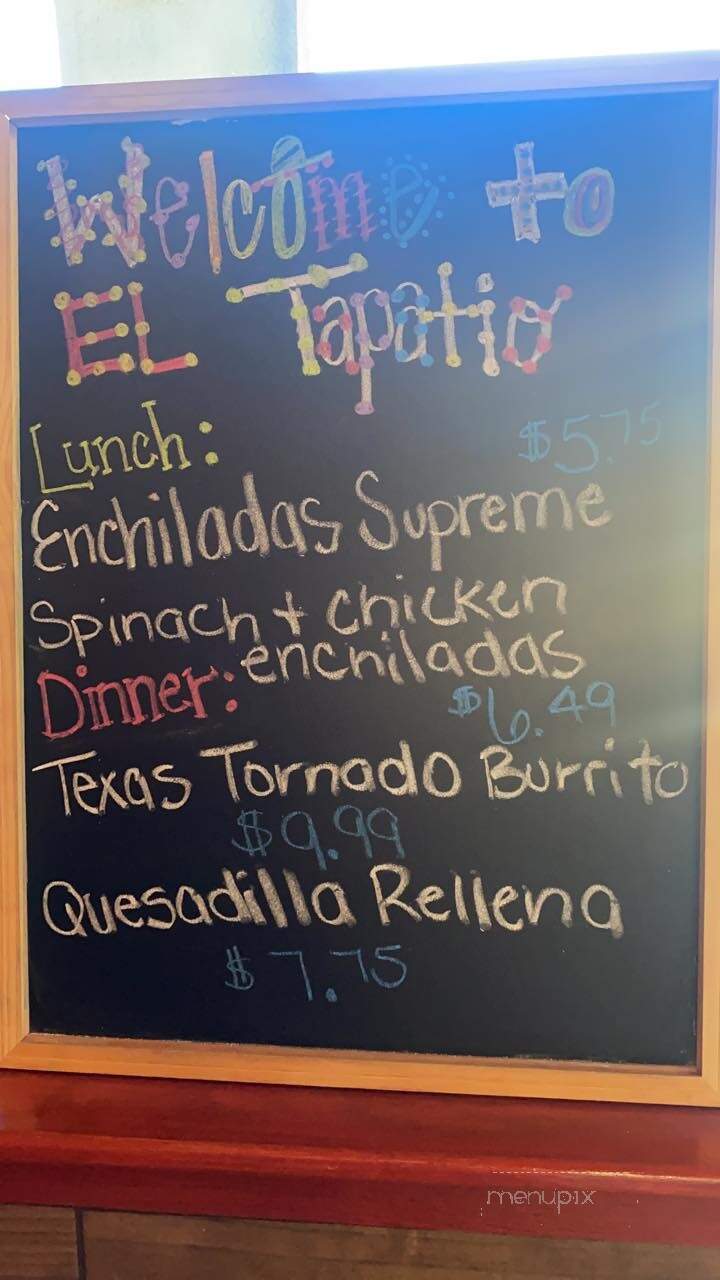 Welcome to
EL Tapatio
Lunch: $5.75
Enchiladas Supreme
Spinach + chicken
enchiladas
Dinner: $6.49
Texas Tornado Burrito
$9.99
Quesadilla Rellena
$7.75
menupix